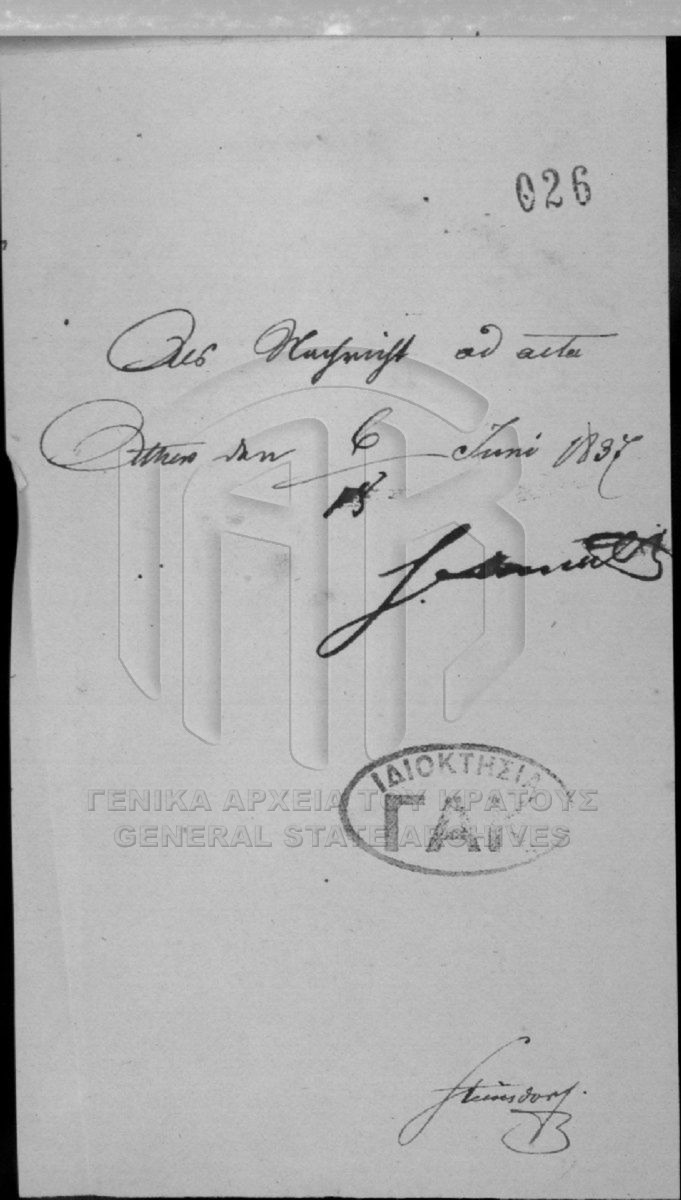 026
Als Nachricht ad acta
Athen den 6/18 Juni 1837
ΙΔΙΟΚΤΗΣΙΑ
ΓΑΚ
ΓΕΝΙΚΑ ΑΡΧΕΙΑ ΤΟΥ ΚΡΑΤΟΥΣ
GENERAL STATE ARCHIVES